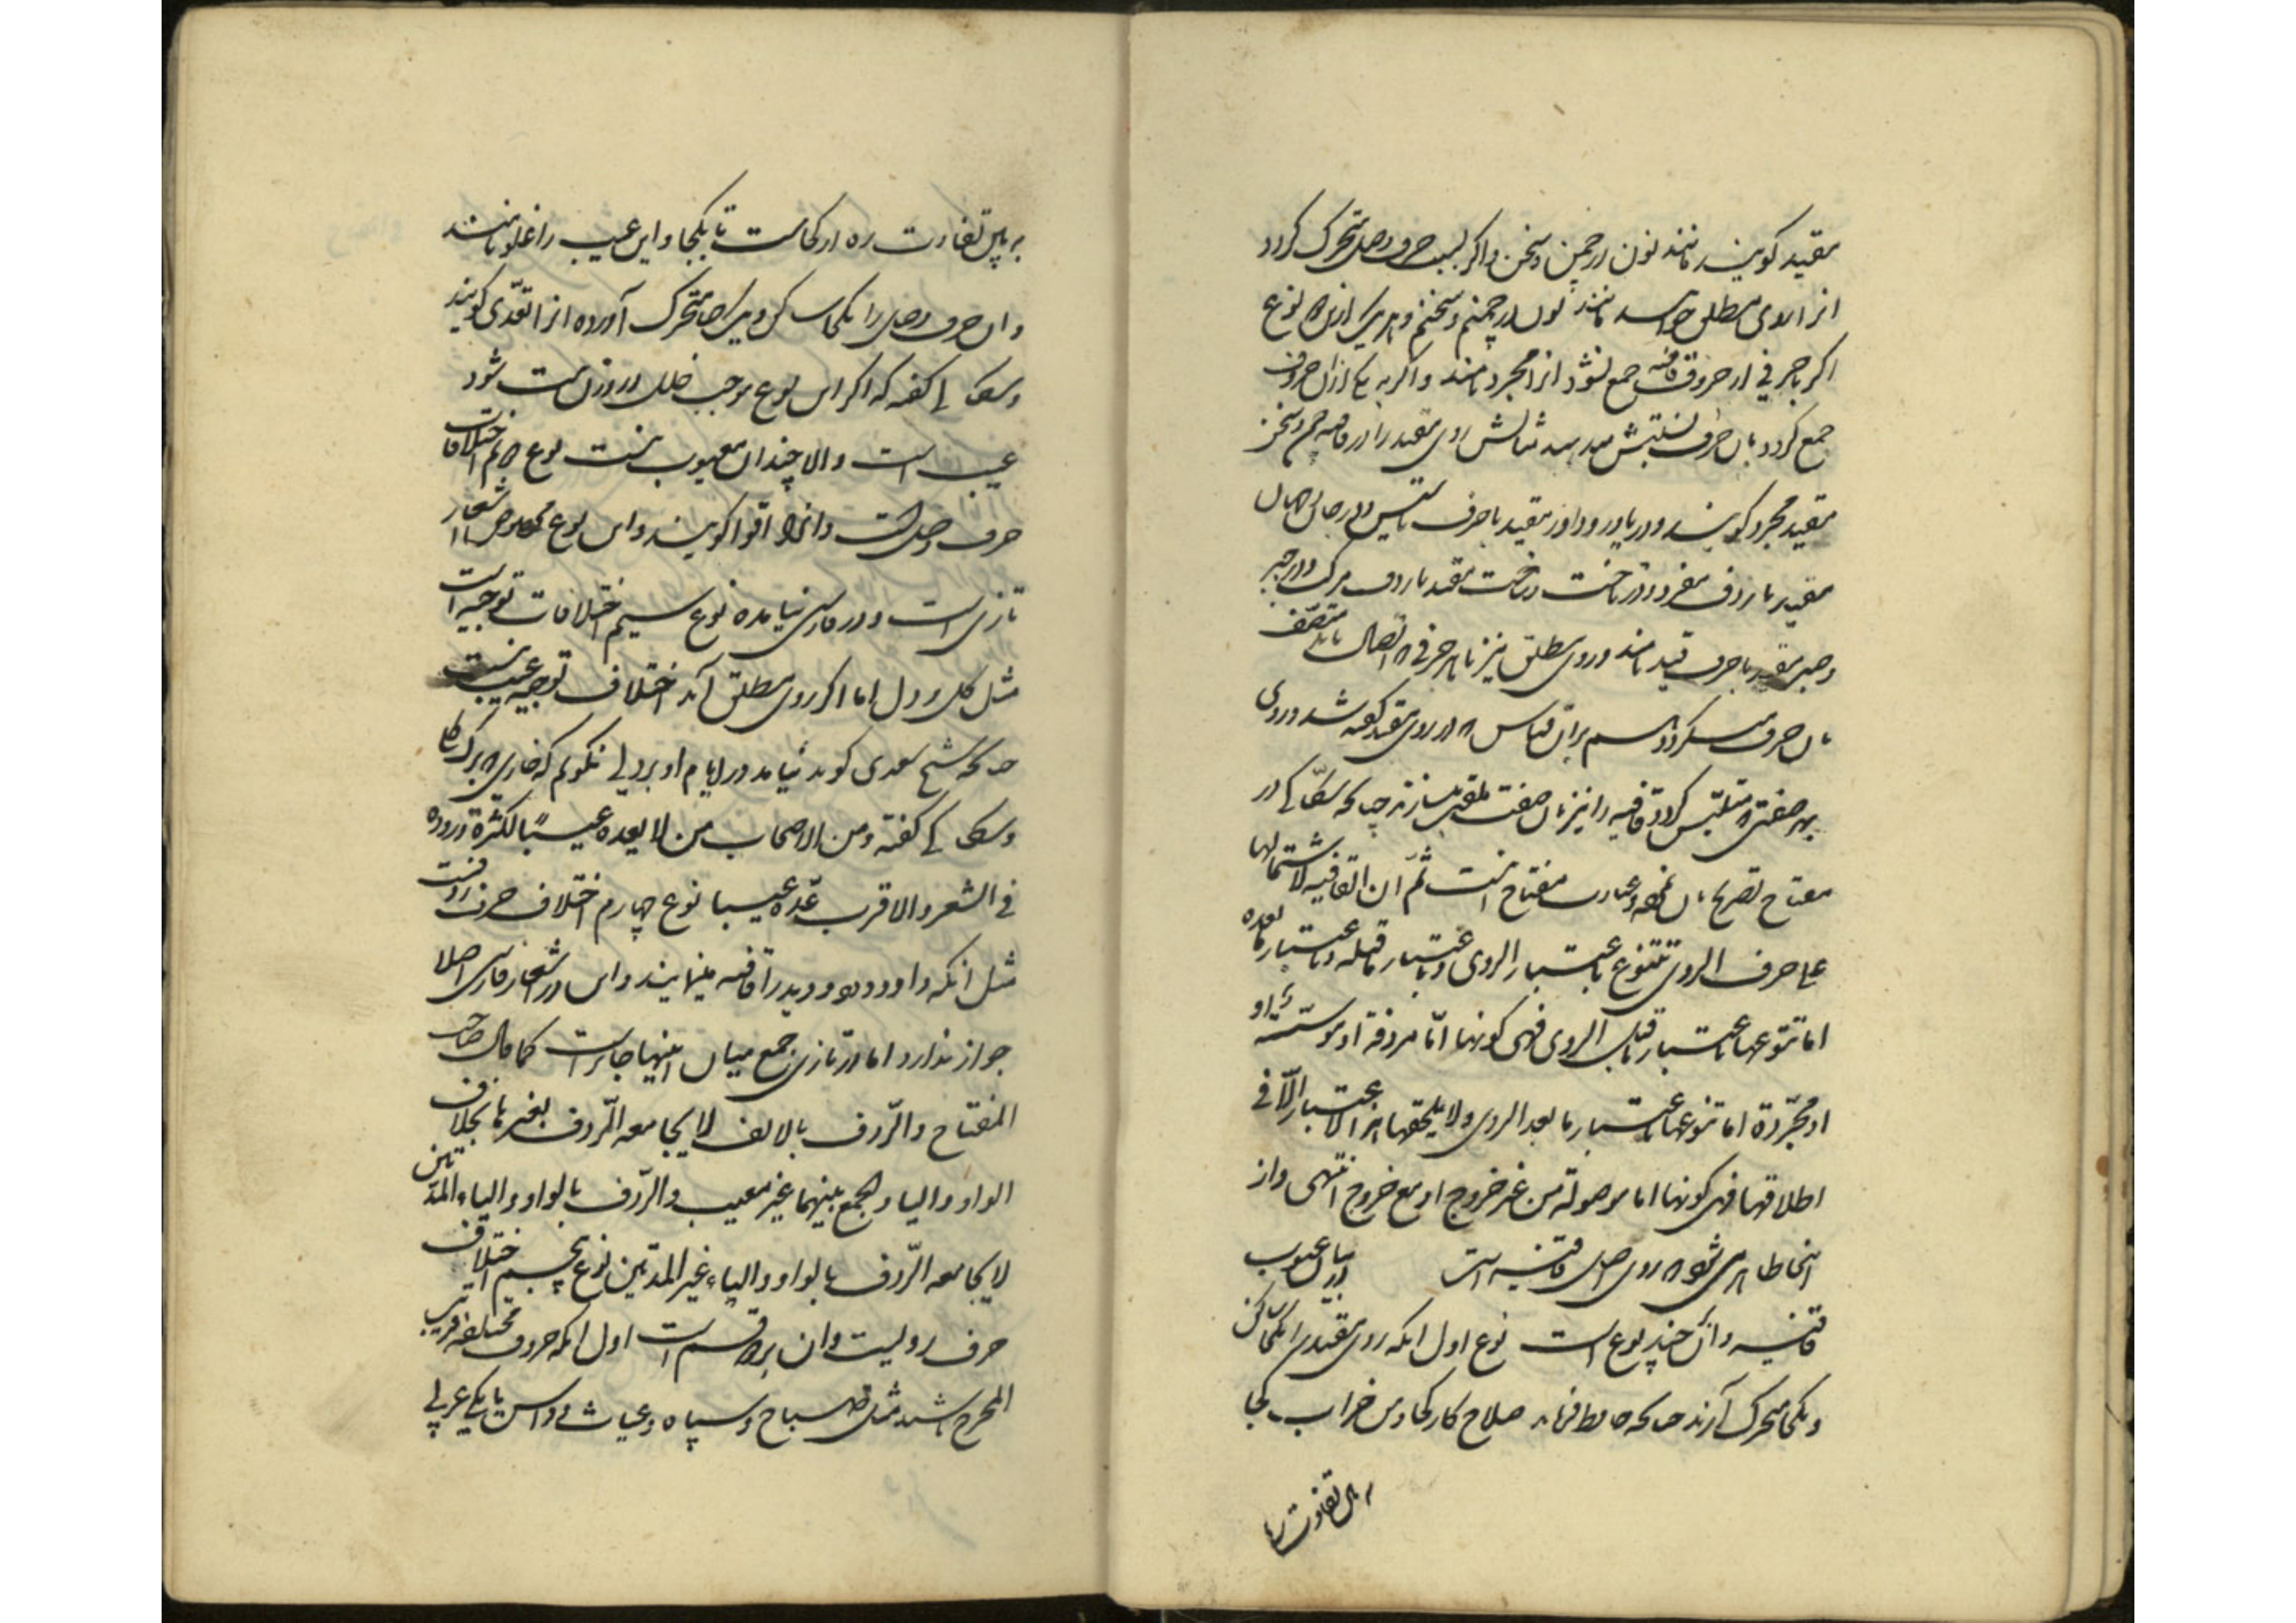 مقید کویند مانند نون در چمن و سخن و اکر بسبب حرف وصل متحرک کردد
انرا روی مطلق خوانند مانند نون در چمنم و سخنم و هر یک ازین دو نوع
اکر با حرفی از حروف قافیه جمع نشود انرا مجرد نامند و اکر به یکی ازان حروف
جمع کردد بان حرف نسبتش میدهند مثالش روی مقید را در قافیه چمن و سخن
مقید مجرد کویند و در یاور و داور مقید با حرف تاسیس و در جان و جهان
مقید با ردف مفرد و در تاخت و ساخت مقید با ردف مرکب و در جبر
و صبر مقید با حرف قید نامند و روی مطلق نیز با هر حرفی که اتصال یابد متصف
بان حرف میکردد و اسم بران قیاس که در روی مقید کفته شد و روی
بهر صفتی که متلبس کردد قافیه را نیز بان صفت ملقب میسازند چنانکه سکاکی در
مفتاح تصریح بان نموده و عبارت مفتاح اینست ثم ان القافیة لاشتمالها
علی حرف الروی تتنوع باعتبار الروی و باعتبار ما قبله و باعتبار ما بعده
اما تنوعها باعتبار ما قبل الروی فهی کونها اما مردفة او موسسة او
او مجردة اما تنوعها باعتبار ما بعد الروی و لا یلحقها هذا الاعتبار الا فی
اطلاقها فهی کونها اما موصولة من غیر خروج او مع خروج انتهی و از
اینجا ظاهر میشود که روی اصل قافیه است در بیان عیوب
قافیه و ان چند نوع است نوع اول انکه روی مقید را یکجا ساکن
و یکجا متحرک آرند چنانکه حافظ فرماید صلاح کار کجا و من خراب کجا
به بین تفاوت ره
به بین تفاوت ره از کجاست تا بکجا و این عیب را غلو نامند
و ان حرف وصل را یکجا ساکن و یکجا متحرک آورده انرا تعدی کویند
و سکاکی کفته که اکر این نوع موجب خلل در وزن بیت شود
عیب است و الا چندان معیوب نیست نوع دوم اختلاف
حرف وصل است و انرا اقوا کویند و این نوع مخصوص اشعار
تازی است و در فارسی نیامده نوع سیم اختلاف توجیه است
مثل کل و دل اما اکر روی مطلق آید اختلاف توجیه عیب نیست
چنانکه شیخ سعدی کوید نیامد در ایام او بر دلی نکویم که خاری که برک کلی
و سکاکی کفته و من الاصحاب من لا یعده عیبا لکثرة وروده
فی الشعر والاقرب عده عیبا نوع چهارم اختلاف حرف ردفست
مثل انکه داود و دود و دید را قافیه مینمایند و این در اشعار فارسی اصلا
جواز ندارد اما در تازی جمع میان اینها جایز است کما قال صاحب
المفتاح والردف بالالف لا یجامعه الردف بغیرها بخلاف
الواو والیاء والجمع بینهما غیر معیب والردف بالواو والیاء المدتین
لا یجامعه الردف بالواو والیاء غیر المدتین نوع پنجم اختلاف
حرف رویست و ان بر دو قسم است اول انکه حروف مختلفه قریب
المخرج باشند مثل صباح و سپاه و غیاث و اساس یا یکی عربی